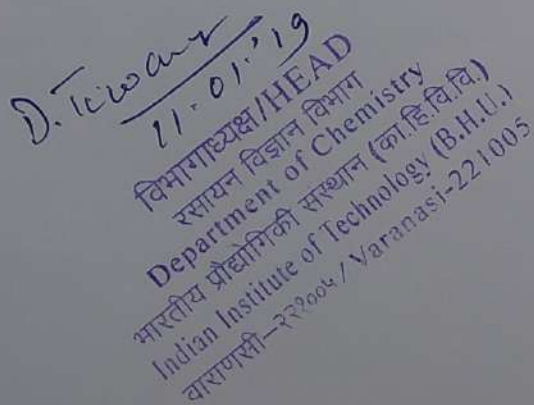 D. Tiwary
11.01.'19
विभागाध्यक्ष/HEAD
रसायन विज्ञान विभाग
Department of Chemistry
भारतीय प्रौद्योगिकी संस्थान (का.हि.वि.वि.)
Indian Institute of Technology (B.H.U.)
वाराणसी-२२१००५ / Varanasi-221005